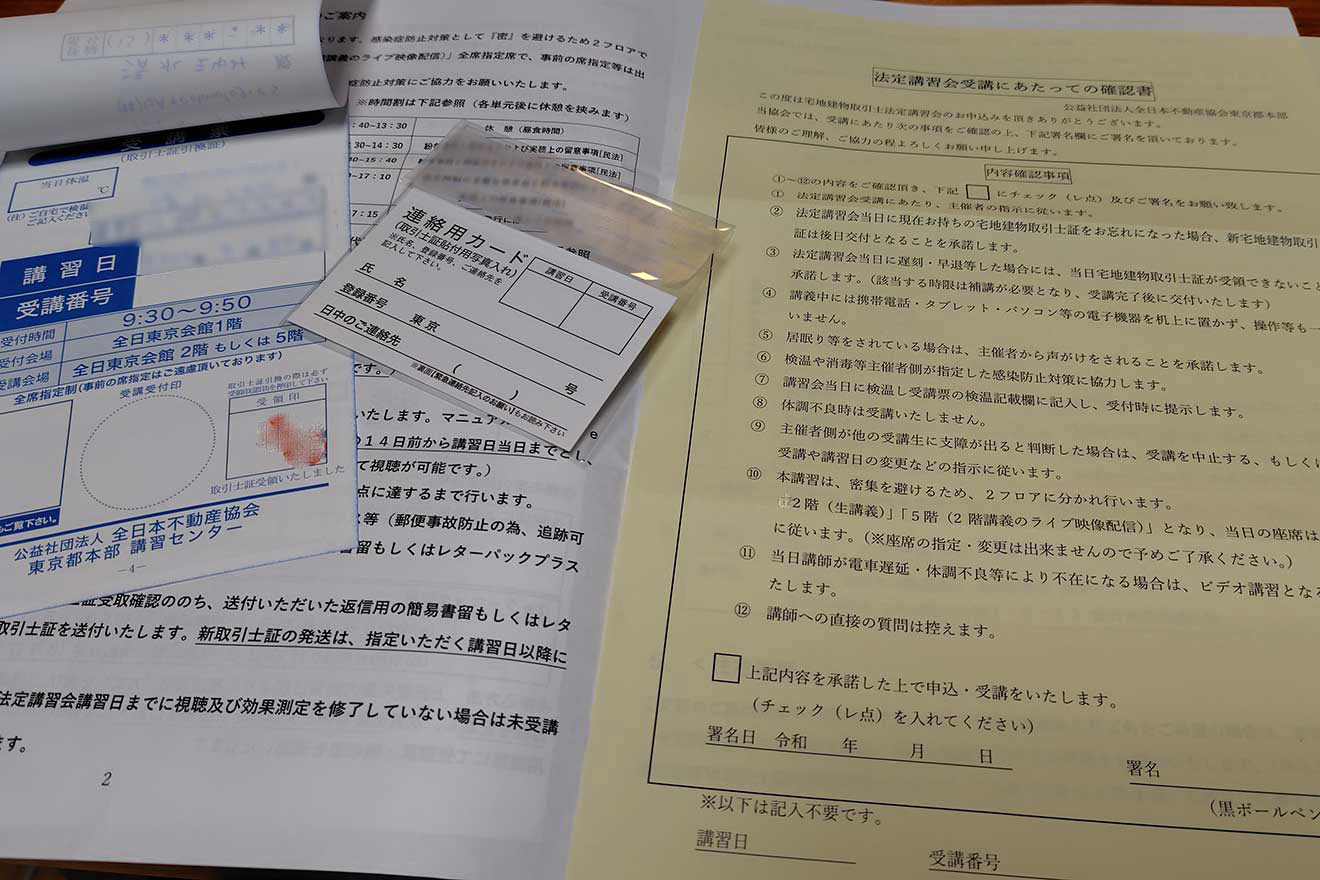 のご案内
なります。感染症防止対策として『密』を避けるため２フロアで
講義のライブ映像配信）」全席指定席で、事前の席指定等は出
防止対策にご協力をお願いいたします。
※時間割は下記参照（各単元後に休憩を挟みます）
：40~13：30 休 憩（昼食時間）
30~14：30 および実務上の留意事項[民法]
~15：40 留意事項[民法]
~17：10
17：15
受 講 票
（取引士証引換証）
当日体温
℃
（注）ご自宅で検温
ご記入ください
講 習 日
受講番号
受付時間 9:30～9:50
受付会場 全日東京会館1階
受講会場 全日東京会館 2階 もしくは 5階
全席指定制（事前の席指定はご遠慮頂いております）
受講受付印
取引士証引換の際は必ず
受領印
取引士証受領いたしました
もご覧下さい。
公益社団法人 全日本不動産協会
東京都本部 講習センター
—4—
連絡用カード
（取引士証貼付用写真入れ）
※氏名、登録番号、ご連絡先を
記入して下さい。
講習日 受講番号
氏 名
登録番号 東京 （ ） 号
日中のご連絡先
※裏面【緊急連絡先記入のお願い】もお読み下さい
いたします。マニュアル
の１４日前から講習日当日までとし、
て視聴が可能です。）
点に達するまで行います。
ス等（郵便事故防止の為、追跡可
書留もしくはレターパックプラス
証受取確認ののち、送付いただいた返信用の簡易書留もしくはレタ
取引士証を送付いたします。新取引士証の発送は、指定いただく講習日以降に
法定講習会講習日までに視聴及び効果測定を修了していない場合は未受講
ます。
2
法定講習会受講にあたっての確認書
公益社団法人全日本不動産協会東京都本部
この度は宅地建物取引士法定講習会のお申込みを頂きありがとうございます。
当協会では、受講にあたり次の事項をご確認の上、下記署名欄にご署名を頂いております。
皆様のご理解、ご協力の程よろしくお願い申し上げます。
内容確認事項
①～⑫の内容をご確認頂き、下記 □ にチェック（レ点）及びご署名をお願い致します。
① 法定講習会受講にあたり、主催者の指示に従います。
② 法定講習会当日に現在お持ちの宅地建物取引士証をお忘れになった場合、新宅地建物取引
証は後日交付となることを承諾します。
③ 法定講習会当日に遅刻・早退等した場合には、当日宅地建物取引士証が受領できないこと
承諾します。（該当する時限は補講が必要となり、受講完了後に交付いたします）
④ 講義中には携帯電話・タブレット・パソコン等の電子機器を机上に置かず、操作等も一
いません。
⑤ 居眠り等をされている場合は、主催者から声がけをされることを承諾します。
⑥ 検温や消毒等主催者側が指定した感染防止対策に協力します。
⑦ 講習会当日に検温し受講票の検温記載欄に記入し、受付時に提示します。
⑧ 体調不良時は受講いたしません。
⑨ 主催者側が他の受講生に支障が出ると判断した場合は、受講を中止する、もしくは
受講や講習日の変更などの指示に従います。
⑩ 本講習は、密集を避けるため、２フロアに分かれ行います。
「2階（生講義）」「５階（２階講義のライブ映像配信）」となり、当日の座席は
に従います。（※座席の指定・変更は出来ませんので予めご了承ください。）
⑪ 当日講師が電車遅延・体調不良等により不在になる場合は、ビデオ講習となる
たします。
⑫ 講師への直接の質問は控えます。
□上記内容を承諾した上で申込・受講をいたします。
（チェック（レ点）を入れてください）
署名日 令和 年 月 日
署名
（黒ボールペン
※以下は記入不要です。
講習日 受講番号